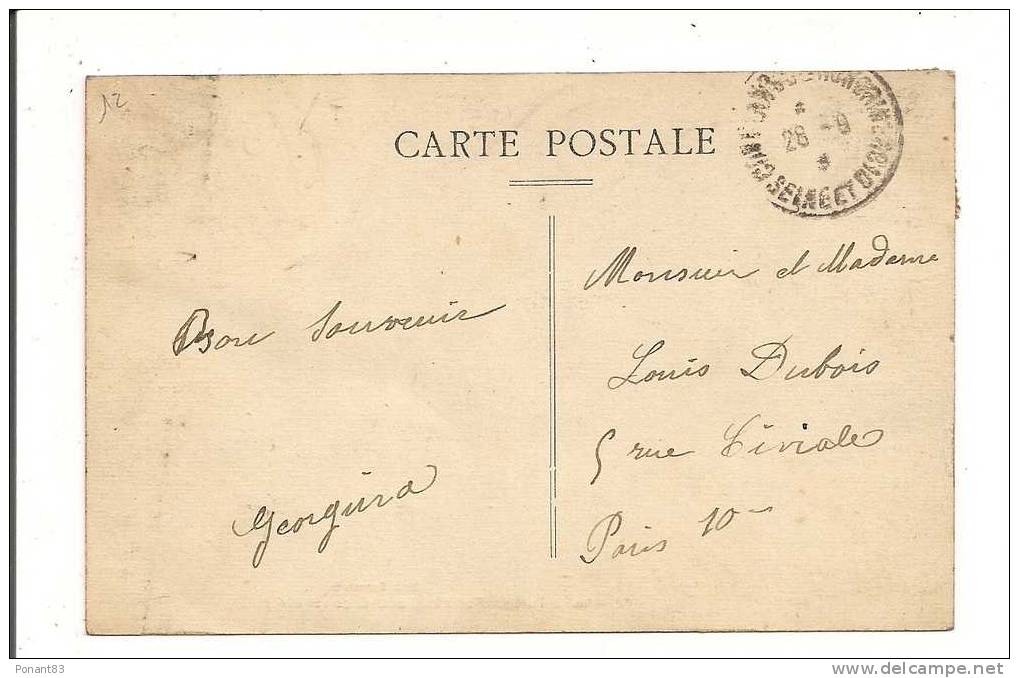 12
CARTE POSTALE
28 -9
SEINE ET OISE
Bon Souvenir
Georgina
Monsieur et Madame
Louis Dubois
5 rue Civiale
Paris 10
Ponant83
www.delcampe.net